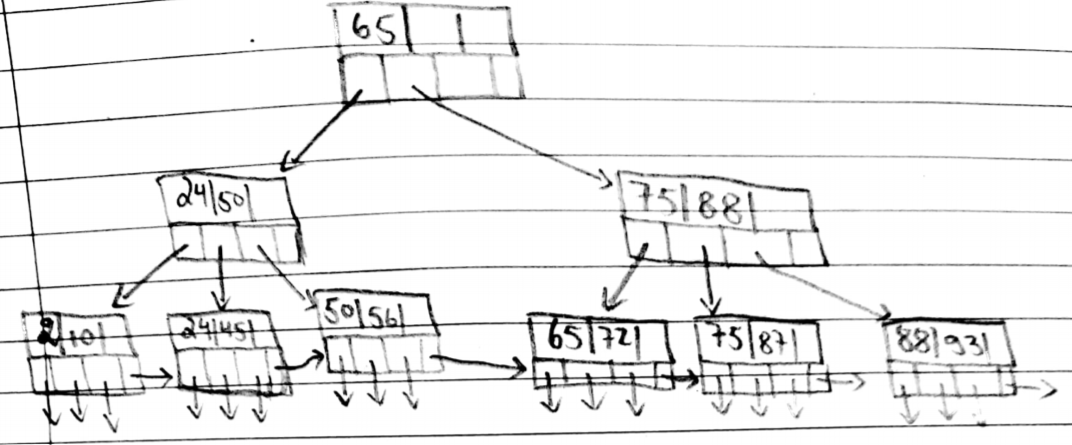 65
24 50
75 88
2 10
24 45
50 56
65 72
75 87
88 93